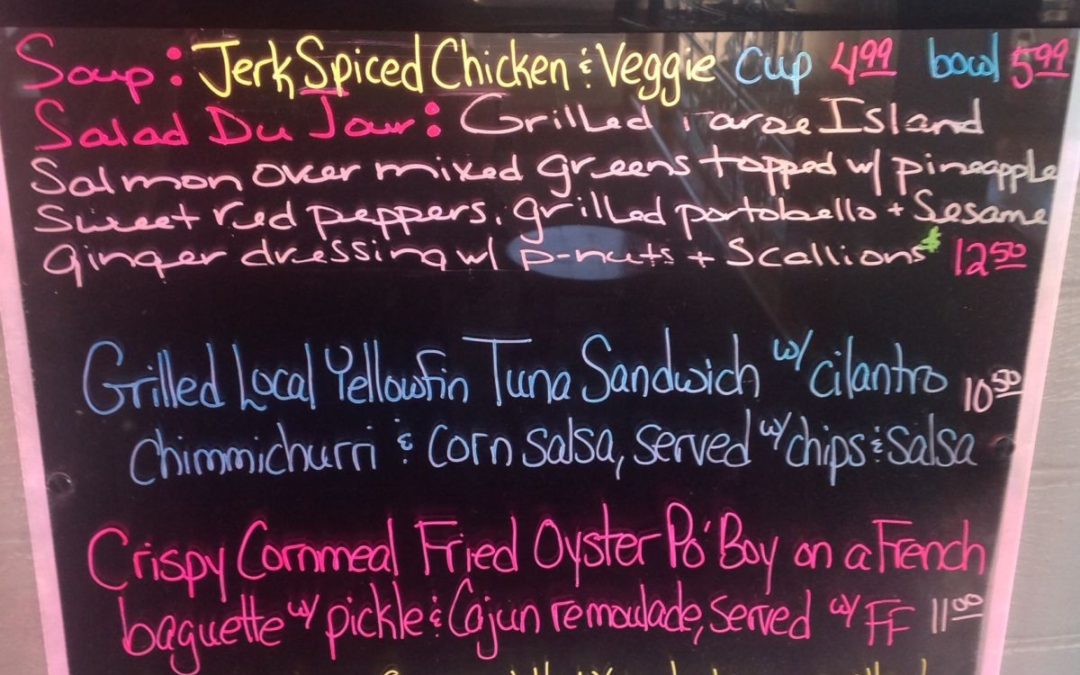 Soup: Jerk Spiced Chicken & Veggie Cup 4.99 bowl 5.99
Salad Du Jour: Grilled Faroe Island
Salmon over mixed greens topped w/ pineapple
Sweet red peppers, grilled portobello + Sesame
Ginger dressing w/ p-nuts + Scallions* 12.50
Grilled Local Yellowfin Tuna Sandwich w/ cilantro 10.50
Chimmichurri & corn salsa, served w/ chips & salsa
Crispy Cornmeal Fried Oyster Po'Boy on a French
baguette w/ pickle & Cajun remoulade, served w/ FF 11.00